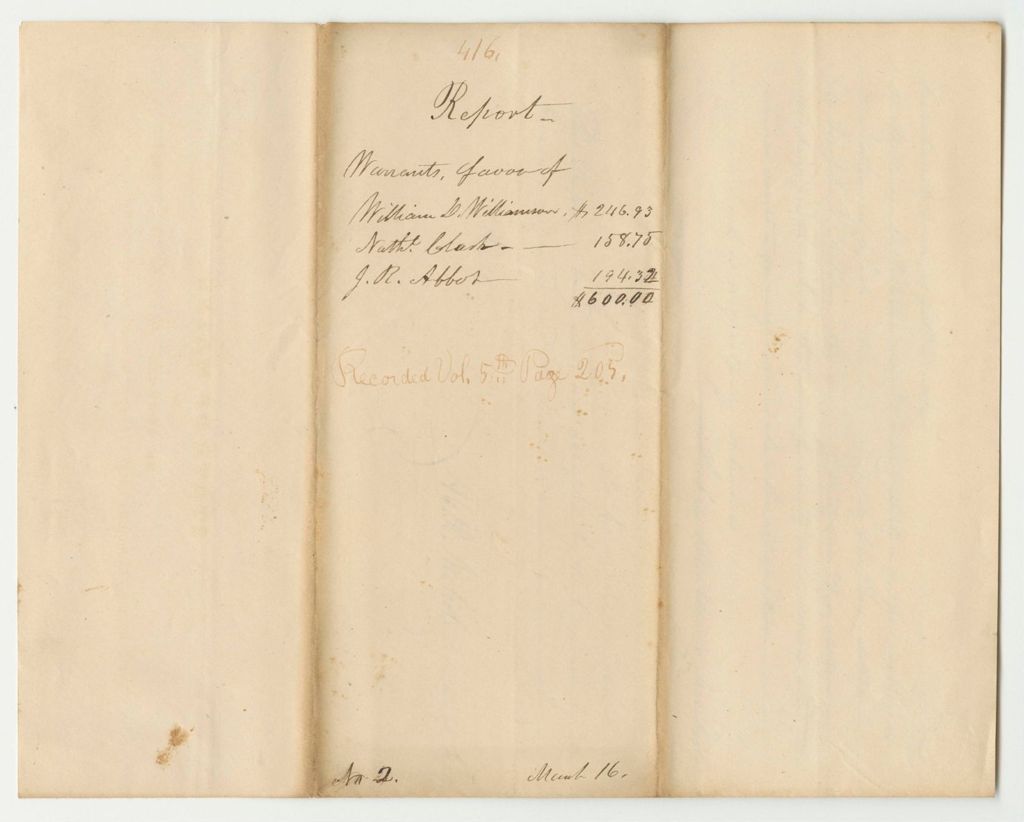 416.
Report -
Warrants, favor of
William D. Williamson, $ 246.93
Nathl. Clark - 158.75
J. R. Abbot 194.32
$600.00
Recorded Vol. 5th Page 205.
No 2. March 16.